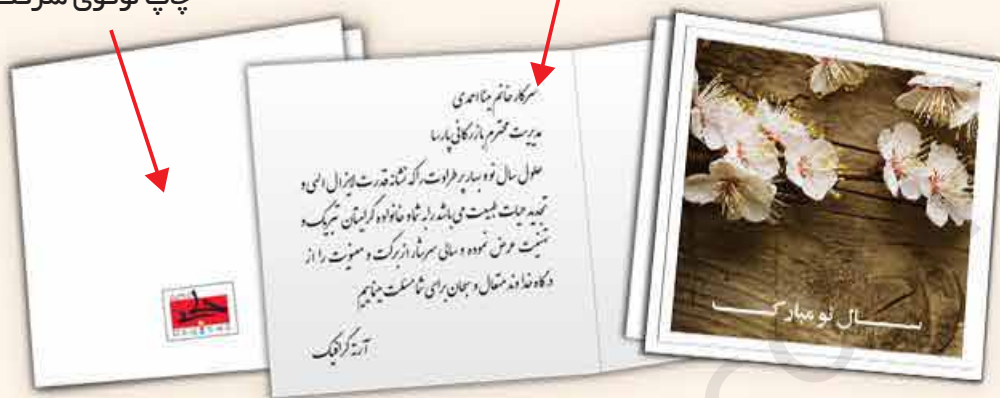 چاپ لوگوی شرکت
سرکار خانم مینا احمدی
مدیریت محترم بازرگانی پارسا
حلول سال نو و بهار پر طراوت را که نشانه قدرت لایزال الهی و
تجدید حیات طبیعت می باشد را به شما و خانواده گرامیتان تبریک و
تهنیت عرض نموده و سالی سرشار از برکت و معنویت را از
درگاه خداوند متعال و سبحان برای شما مسئلت می‌نماییم
آرته گرافیک
ســال نو مبارکــ